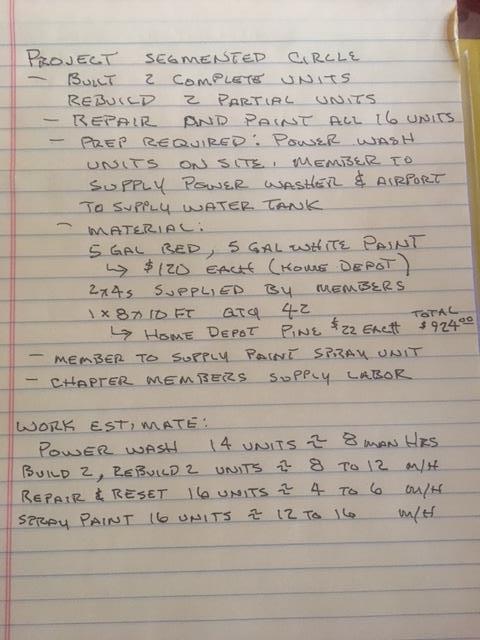 PROJECT SEGMENTED CIRCLE
- BUILT 2 COMPLETE UNITS
REBUILD 2 PARTIAL UNITS
- REPAIR AND PAINT ALL 16 UNITS
- PREP REQUIRED: POWER WASH
UNITS ON SITE. MEMBER TO
SUPPLY POWER WASHER & AIRPORT
TO SUPPLY WATER TANK
- MATERIAL:
5 GAL RED, 5 GAL WHITE PAINT
↳ $120 EACH (HOME DEPOT)
2x4s SUPPLIED BY MEMBERS
1 x 8 x 10 FT QTQ 42
↳ HOME DEPOT PINE $22 EACH TOTAL $924.00
- MEMBER TO SUPPLY PAINT SPRAY UNIT
- CHAPTER MEMBERS SUPPLY LABOR
WORK ESTIMATE:
POWER WASH 14 UNITS ≈ 8 MAN HRS
BUILD 2, REBUILD 2 UNITS ≈ 8 TO 12 M/H
REPAIR & RESET 16 UNITS ≈ 4 TO 6 M/H
SPRAY PAINT 16 UNITS ≈ 12 TO 16 M/H